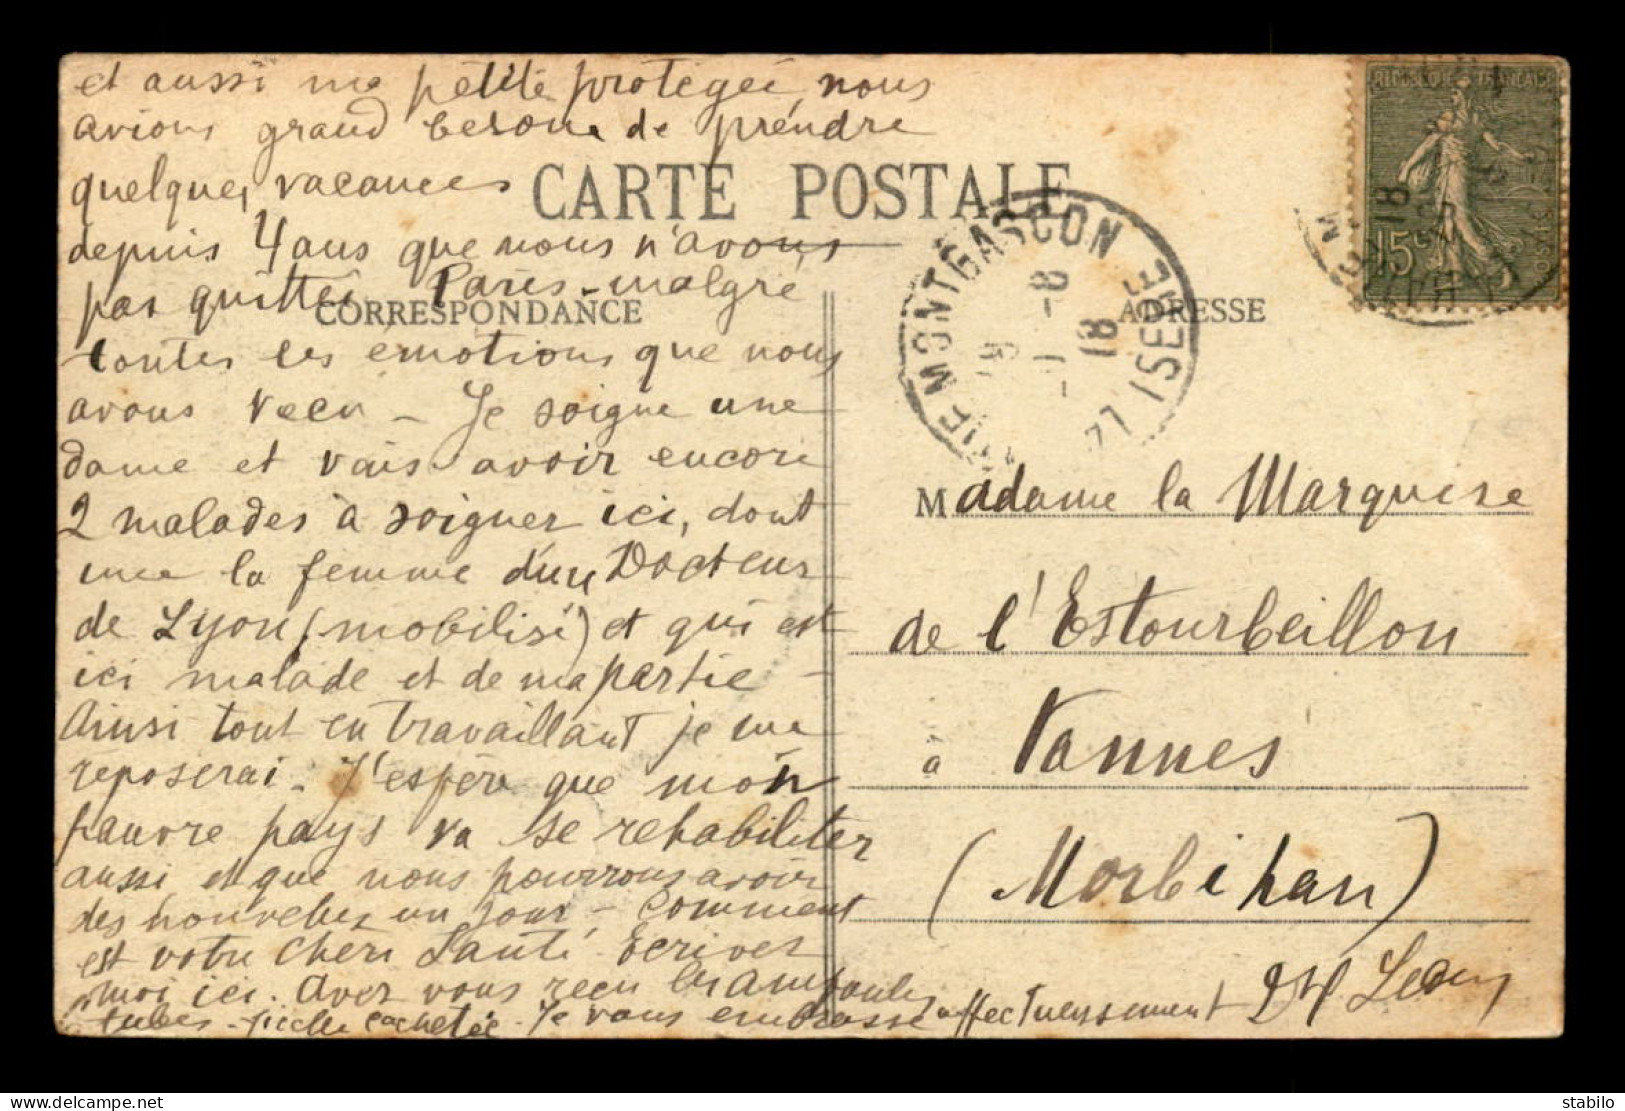 et aussi ma petite protégée, nous
avions grand besoin de prendre
quelques vacances
CARTE POSTALE
depuis 4 ans que nous n'avons
pas quittée Paris - malgré
CORRESPONDANCE
toutes les émotions que nous
avons vécu - Je soigne une
dame et vais avoir encore
2 malades à soigner ici, dont
une la femme d'un Docteur
de Lyon (mobilisé) et qui est
ici malade et de ma partie -
Ainsi tout en travaillant je me
reposerai. J'espère que mon
pauvre pays va se rehabiliter
aussi et que nous pourrons avoir
des nouvelles un jour - Comment
est votre chère Santé. Ecrivez
moi ici. Avez vous reçu les ampoules
tubes cachetée - Je vous embrasse affectueusement
REPUBLIQUE FRANCAISE
15c
POSTES
MONTGASCON
ISERE
1 - 8
18
ADRESSE
Madame la Marquise
de l'Estourbeillon
à Vannes
(Morbihan)
delcampe.net
stabilo